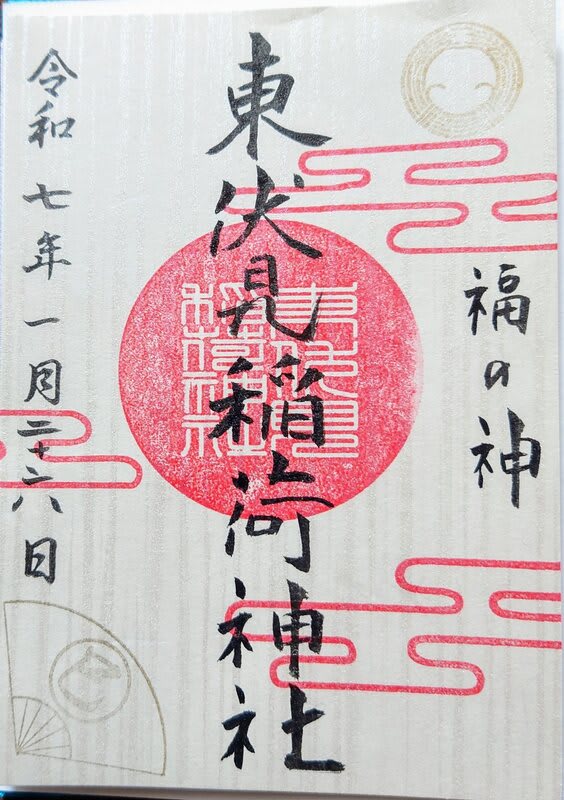 福の神
東伏見稲荷神社
令和七年一月二十六日